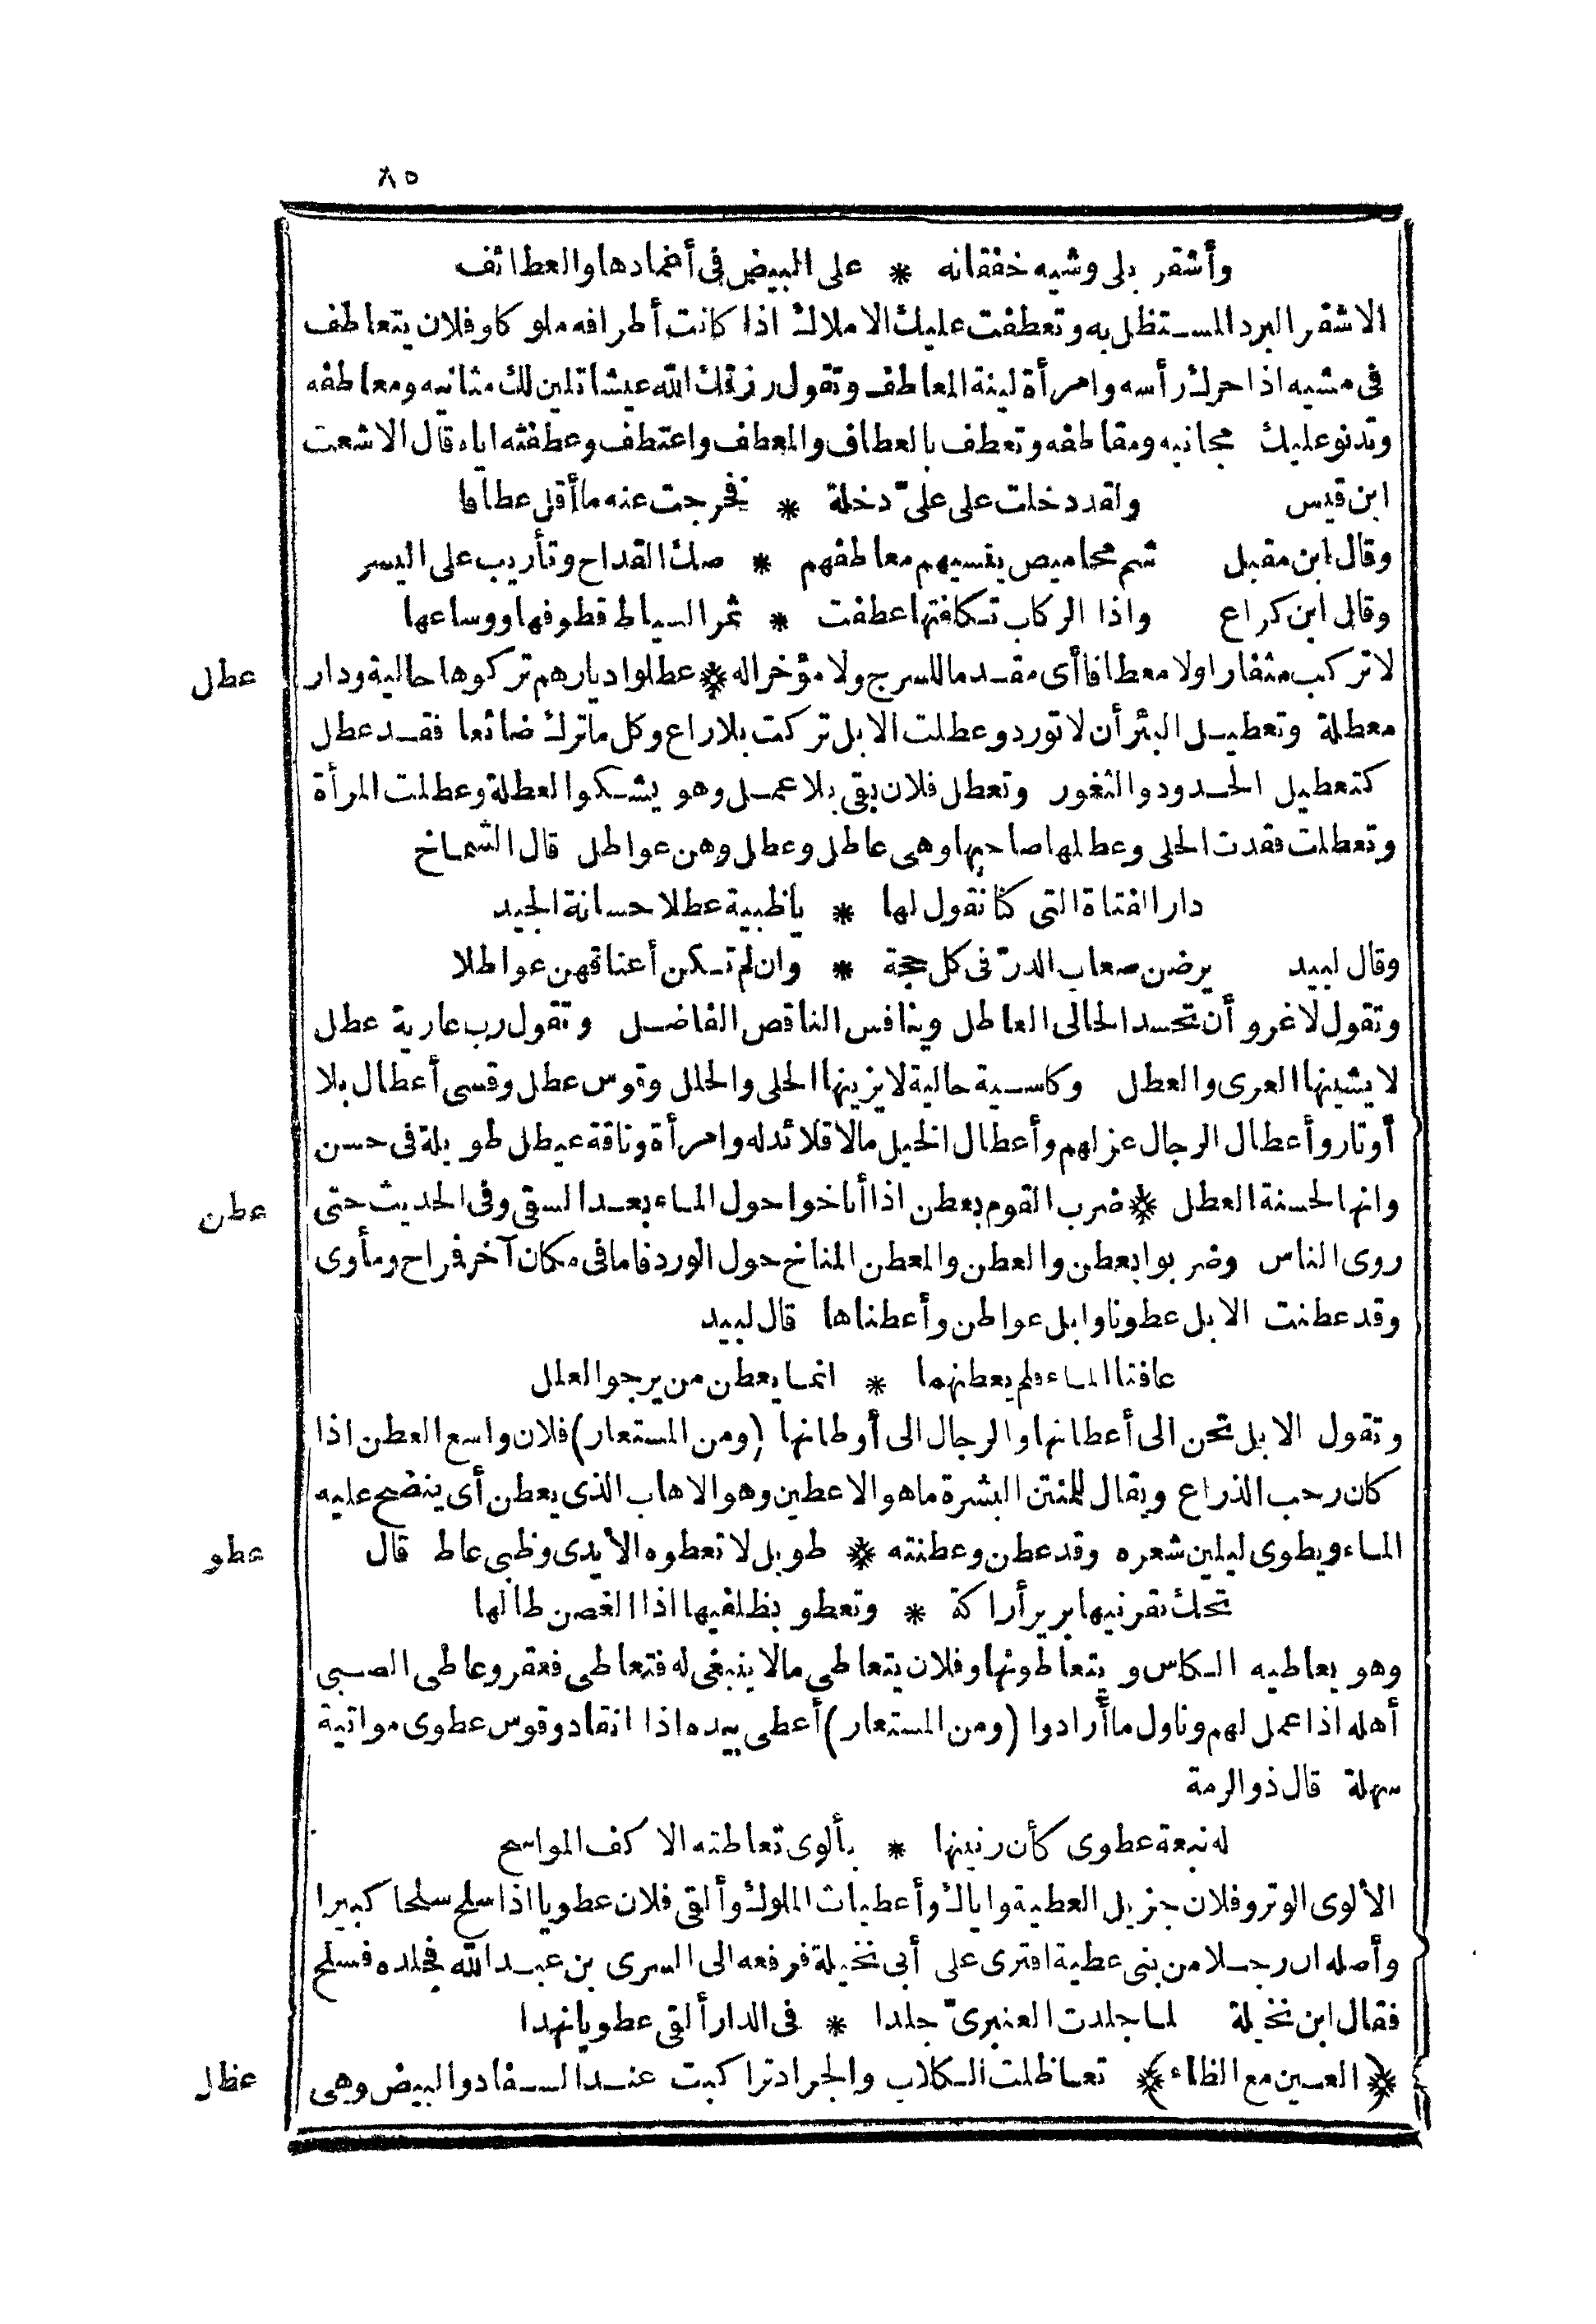 ٨٥
وأشقر بلى وشيه خفقانه * على البيض فى أغمادها والعطائف
الاشقر البرد المستظل به وتعطفت عليك الاملاك اذا كانت أطرافه ملوكا وفلان يتعاطف
فى مشيه اذا حرك رأسه وامرأة لينة المعاطف وتقول رزقك الله عيشا تلين لك مثانيه ومعاطفه
وتدنو عليك مجانيه ومقاطفه وتعطف بالعطاف والمعطف واعتطف وعطفته اياه قال الاشعث
ابن قيس ولقد دخلت على علىّ دخلة * فخرجت عنه ما أقل عطافا
وقال ابن مقبل شم مخاميص ينسيهم معاطفهم * صك القداح وتأريب على اليسر
وقال ابن كراع واذا الركاب تكافتها عطفت * ثمر السياط قطوفها ووساعها
لا تركب مثفارا ولا معطافا أى مقدما للسرج ولا مؤخرا له * عطلوا ديارهم تركوها خالية ودار
عطل
معطلة وتعطيل البئر أن لا تورد وعطلت الابل تركت بلا راع وكل ما ترك ضائعا فقد عطل
كتعطيل الحدود والثغور وتعطل فلان بقى بلا عمل وهو يشكو العطلة وعطلت المرأة
وتعطلت فقدت الحلى وعطلها صاحبها وهى عاطل وعطل وهن عواطل قال الشماخ
دار الفتاة التى كنا نقول لها * يا ظبية عطلا حسانة الجيد
وقال لبيد يرضن صعاب الدرّ فى كل حجة * وان لم تكن أعناقهن عواطلا
وتقول لا غرو أن تحسد الحالى العاطل وينافس الناقص الفاضل وتقول رب عارية عطل
لا يشينها العرى والعطل وكاسية حالية لا يزينها الحلى والحلل وقوس عطل وقسى أعطال بلا
أوتار وأعطال الرجال عزلهم وأعطال الخيل مالا قلائد له وامرأة وناقة عيطل طويلة فى حسن
وانها لحسنة العطل * ضرب القوم بعطن اذا أناخوا حول الماء بعد السقى وفى الحديث حتى
عطن
روى الناس وضربوا بعطن والعطن والمعطن المناخ حول الورد فاما فى مكان آخر فراح ومأوى
وقد عطنت الابل عطونا وابل عواطن وأعطناها قال لبيد
عافتا الماء فلم يعطنهما * انما يعطن من يرجو العلل
وتقول الابل تحن الى أعطانها والرجال الى أوطانها (ومن المستعار) فلان واسع العطن اذا
كان رحب الذراع ويقال للمنتن البشرة ما هو الا عطين وهو الاهاب الذى يعطن أى ينضح عليه
الماء ويطوى ليلين شعره وقد عطن وعطنته * طويل لا تعطوه الأيدى وظبى عاط قال
عطو
تحك بقرنيها برير أراكة * وتعطو بظلفيها اذا الغصن طالها
وهو يعاطيه الكاس ويتعاطونها وفلان يتعاطى مالا ينبغى له فتعاطى فعقر وعاطى الصبى
أهله اذا عمل لهم وناول ما أرادوا (ومن المستعار) أعطى بيده اذا انقاد وقوس عطوى مواتية
سهلة قال ذو الرمة
له نبعة عطوى كأن رنينها * بألوى تعاطته الاكف المواسح
الألوى الوتر وفلان جزيل العطية واياك وأعطيات الملوك وألقى فلان عطويا اذا سلح سلحا كبيرا
وأصله ان رجلا من بنى عطية افترى على أبى نخيلة فرفعه الى السرى بن عبد الله فجلده فسلح
فقال ابن نخيلة لما جلدت العنبرىّ جلدا * فى الدار ألقى عطويا نهدا
﴿العين مع الظاء﴾ تعاظلت الكلاب والجراد تراكبت عند السفاد والبيض وهى
عظل